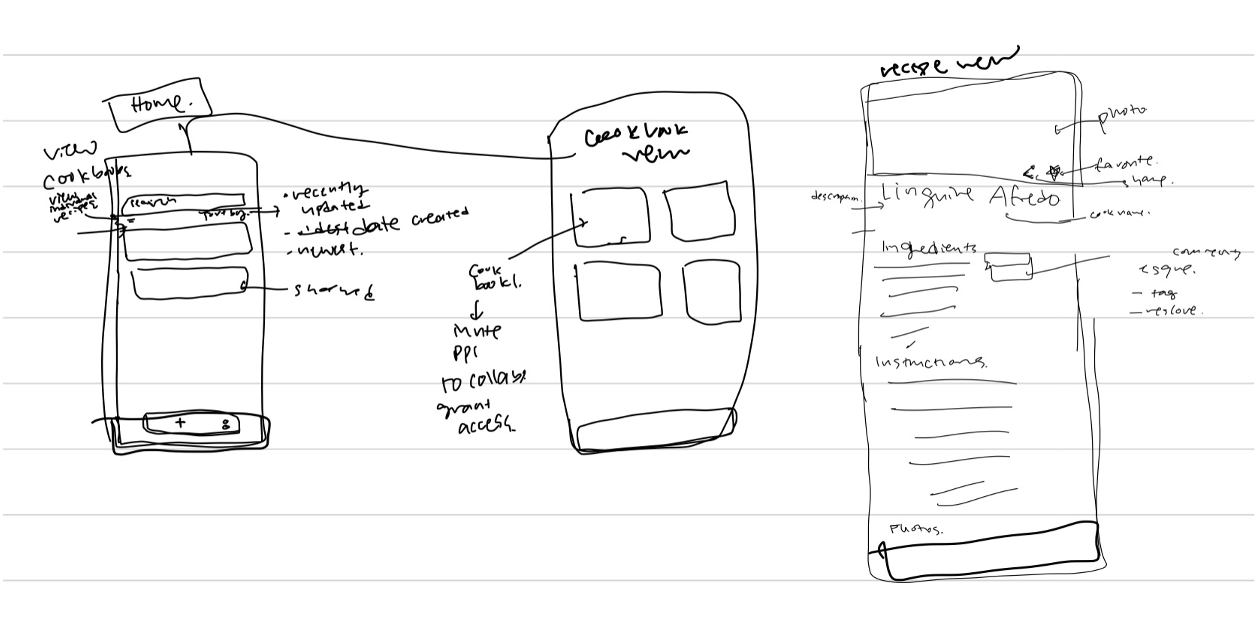 Home.
view
cookbooks
view
individual
recipes
search
• recently
updated
- date created
- newest.
shared
+
Cookbook
view
cook
book 1.
↓
invite
ppl
to collab
grant
access
recipe view
photo
favorite.
share.
description.
Linguine Alfredo
cook name.
Ingredients
commenting
esque.
- tag
- resolve.
Instructions.
Photos.